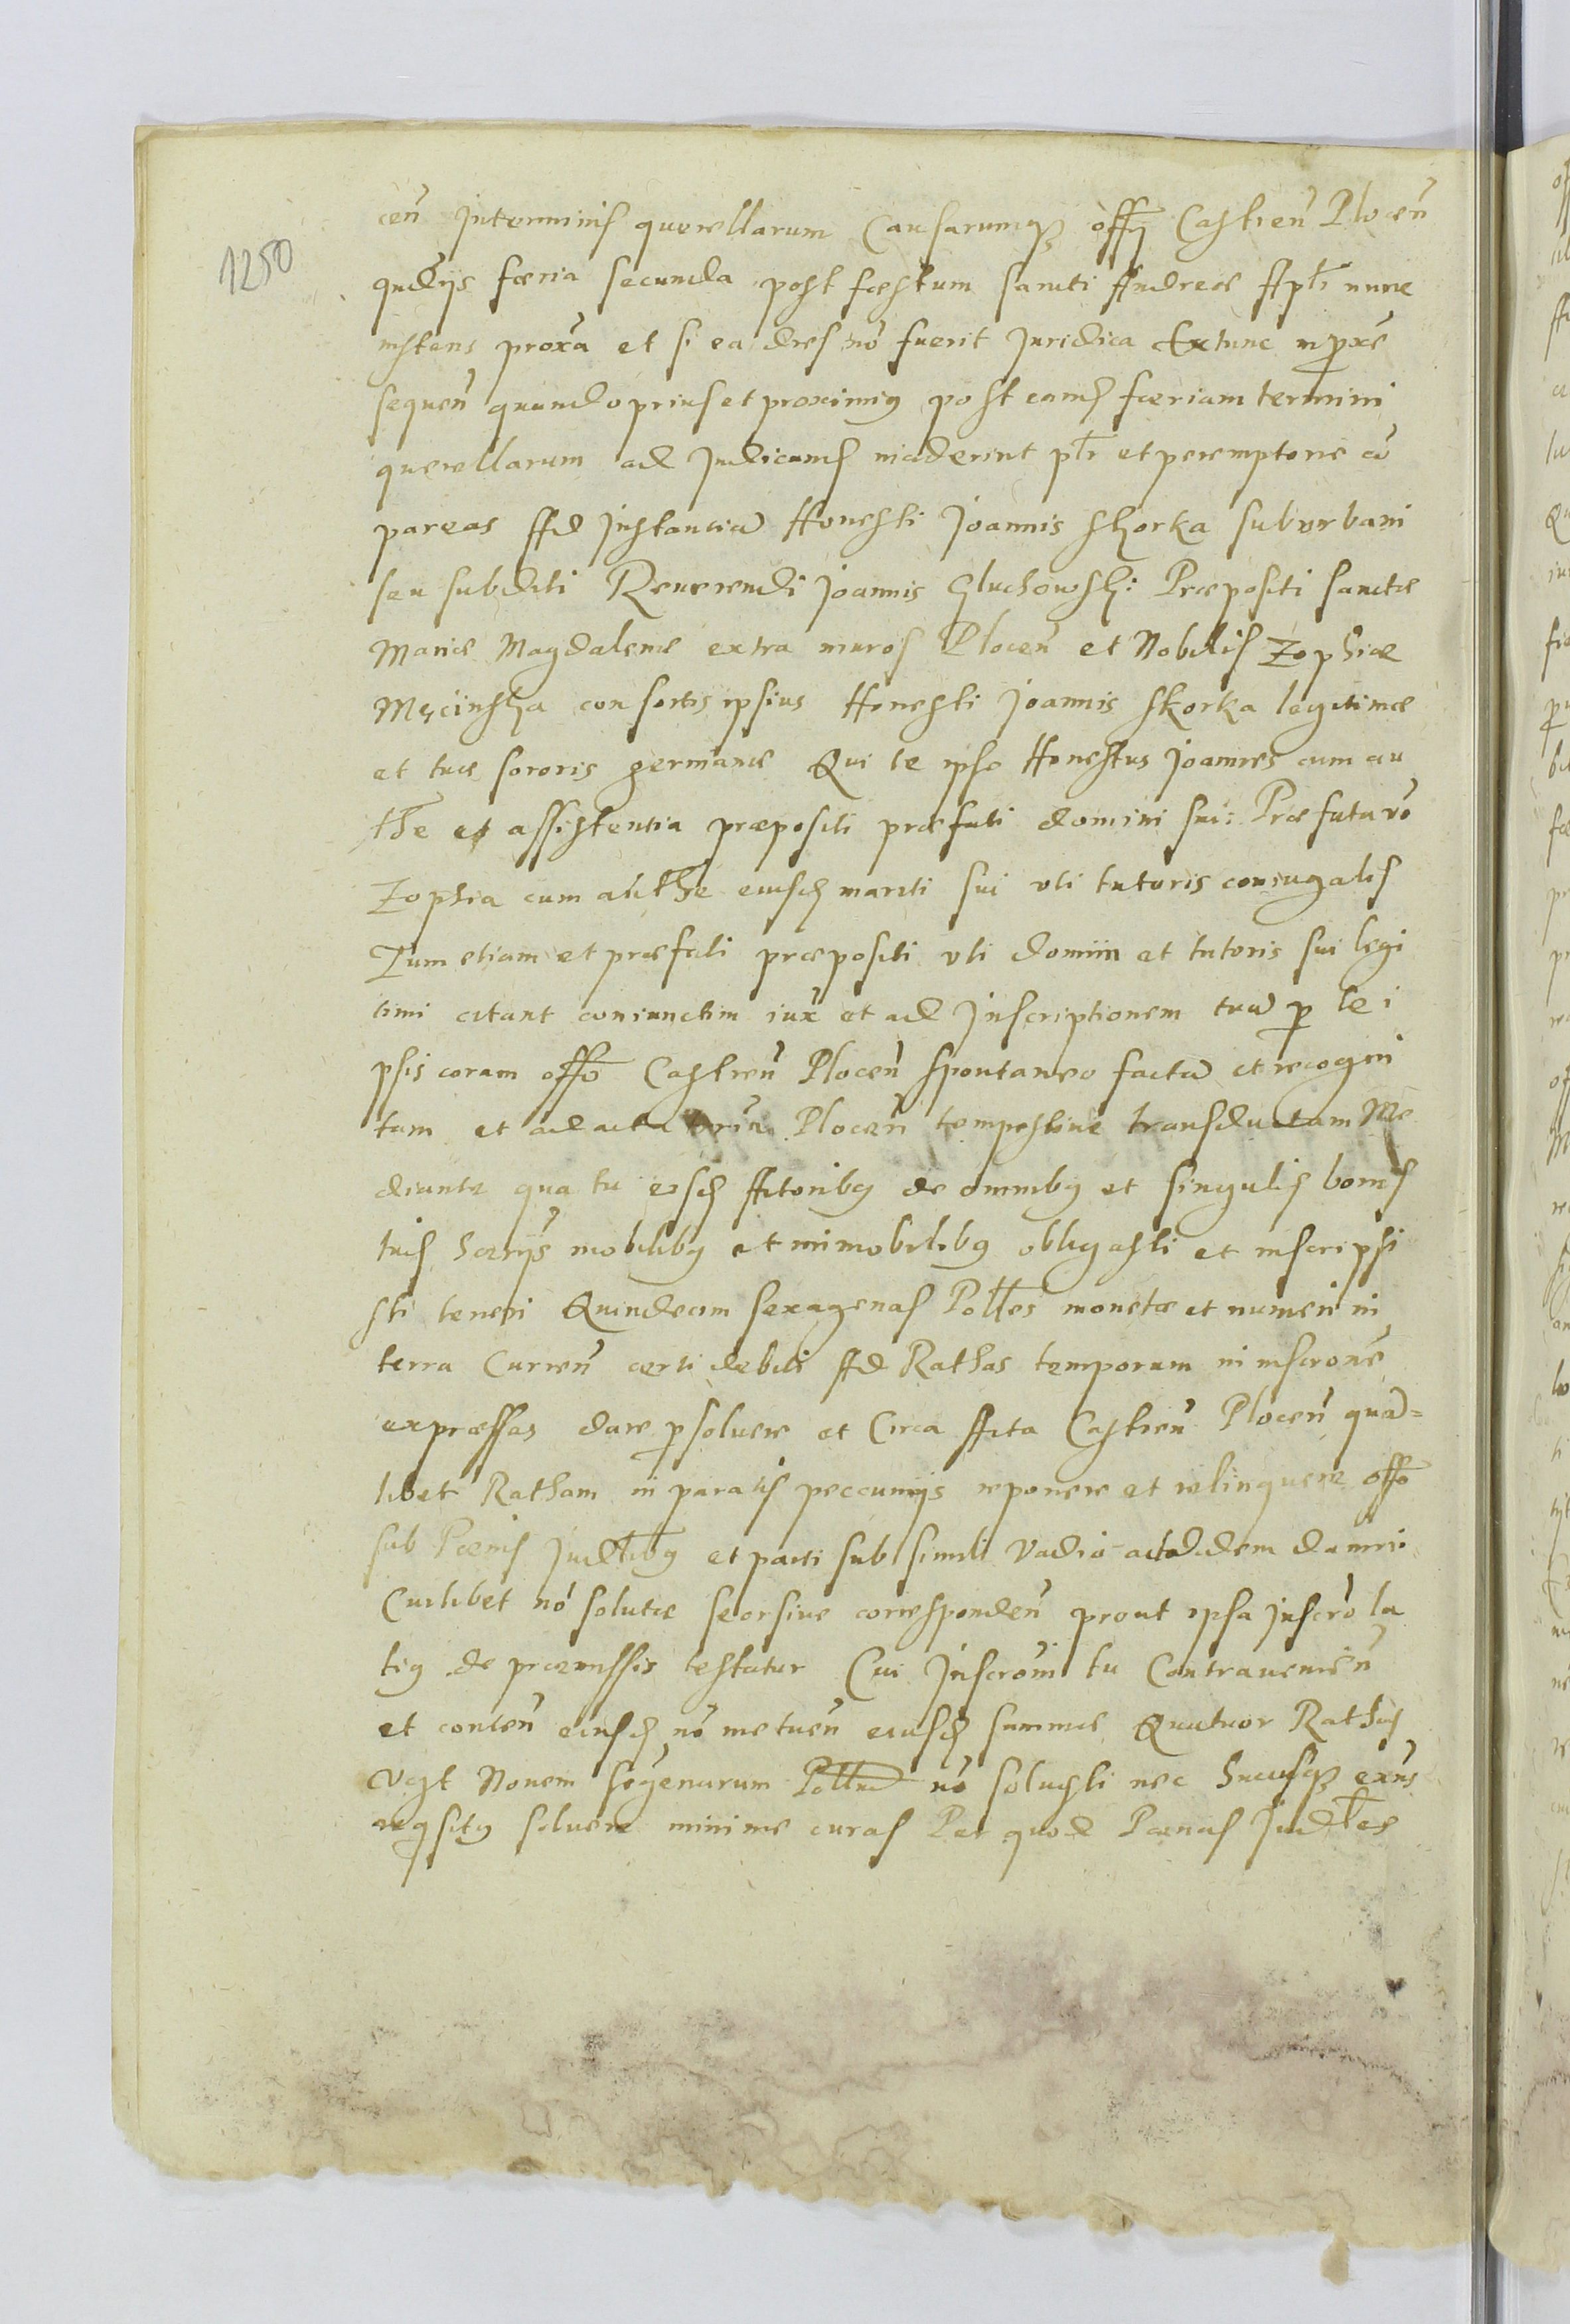 1250
cen̄ In terminis querellarum Causarumqȝ offӯ Castren̄ Plocen̄
qudӯs foeria secunda post foestum sancti Andreae Apl̄i nunc
instans proxā et si ea dies nō fuerit Juridica Extunc in pxē
sequen̄ quando prius et proximꝯ post eandȝ foeriam termini
querellarum ad Judicandȝ inciderint pl̄r et peremptorie cō
pareas Ad Instantiā Honesti Joannis Skorka suburbani
seu subditi Reverendi Joannis Gluchowskj: Praepositi sanctae
Mariae Magdalenae extra muros Plocen̄ et Nobilis Zophiae
Męcinska consortis ipsius Honesti Joannis Skorka legitimae
et tuae sororis germanae Qui te ipse Honestus Joannes cum au
thē et assistentia praepositi praefati domini sui: Praefata vō
Zophia cum authē eiusdȝ mariti sui uti tutoris coniugalis
Tum etiam et praefati praepositi uti domini et tutoris sui legi
timi citant coniunctim iux̄ et ad Inscriptionem tuā ꝑ te i
psis coram offō Castren̄ Plocen̄ spontaneo factā et recogni
tam et ad acta Plocen̄ tempestive transductam Me
diante qua tu eisdȝ Actoribꝯ de omnibꝯ et singulis bonis
tuis haerӯs mobilibꝯ et immobilibꝯ obligasti et inscripsi
sti teneri Quindecim sexagenas Poll̄es monetae et numeri in
terra Curren̄ certi debiti Ad Rathas temporum in inscronē
expraessas dare ꝑsoluere et Circa Acta Castren̄ Plocen̄ quā=
libet Ratham in paratis peccunӯs reponere et relinquere offō
sub Poenis Judl̄ibꝯ et pacti sub simili Vadio ac damni
Cuilibet nō solutae seorsive corresponden̄ prout ipsa Inscrō la
tiꝯ de praemissis testatur Cui Inscroni tu Contravenien̄
et conten̄ eiusdȝ nō metuen̄ eiusdȝ summae Quatuor Rathas
Vcꝫt Novem sēgenarum Poll̄iū nō soluisti nec hucusqȝ exn̄s
reqsitꝯ soluere minime curas Per quod Poenas Judl̄es